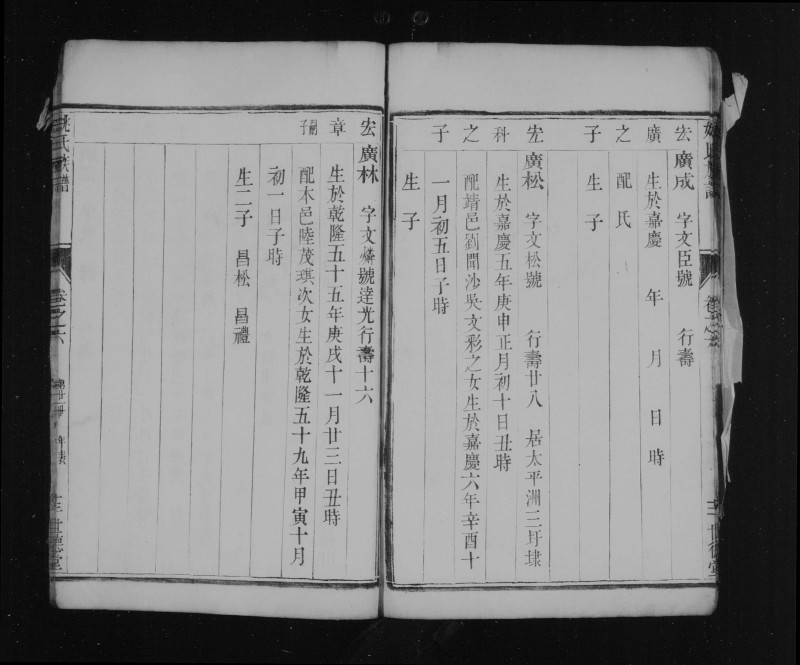 宏廣之子
廣成 字文臣號 行壽
生於嘉慶 年 月 日 時
配 氏
生 子
宏科之子
廣松 字文松號 行壽廿八 居太平洲三圩埭
生於嘉慶五年庚申正月初十日丑時
配靖邑劉聞沙吳文彩之女生於嘉慶六年辛酉十
一月初五日子時
生 子
世德堂
宏章嗣子
廣林 字文燐號達光行壽十六
生於乾隆五十五年庚戌十一月廿三日丑時
配本邑陸茂琪次女生於乾隆五十九年甲寅十月
初一日子時
生二子 昌松 昌禮
姚氏族譜
卷之六
年表
世德堂